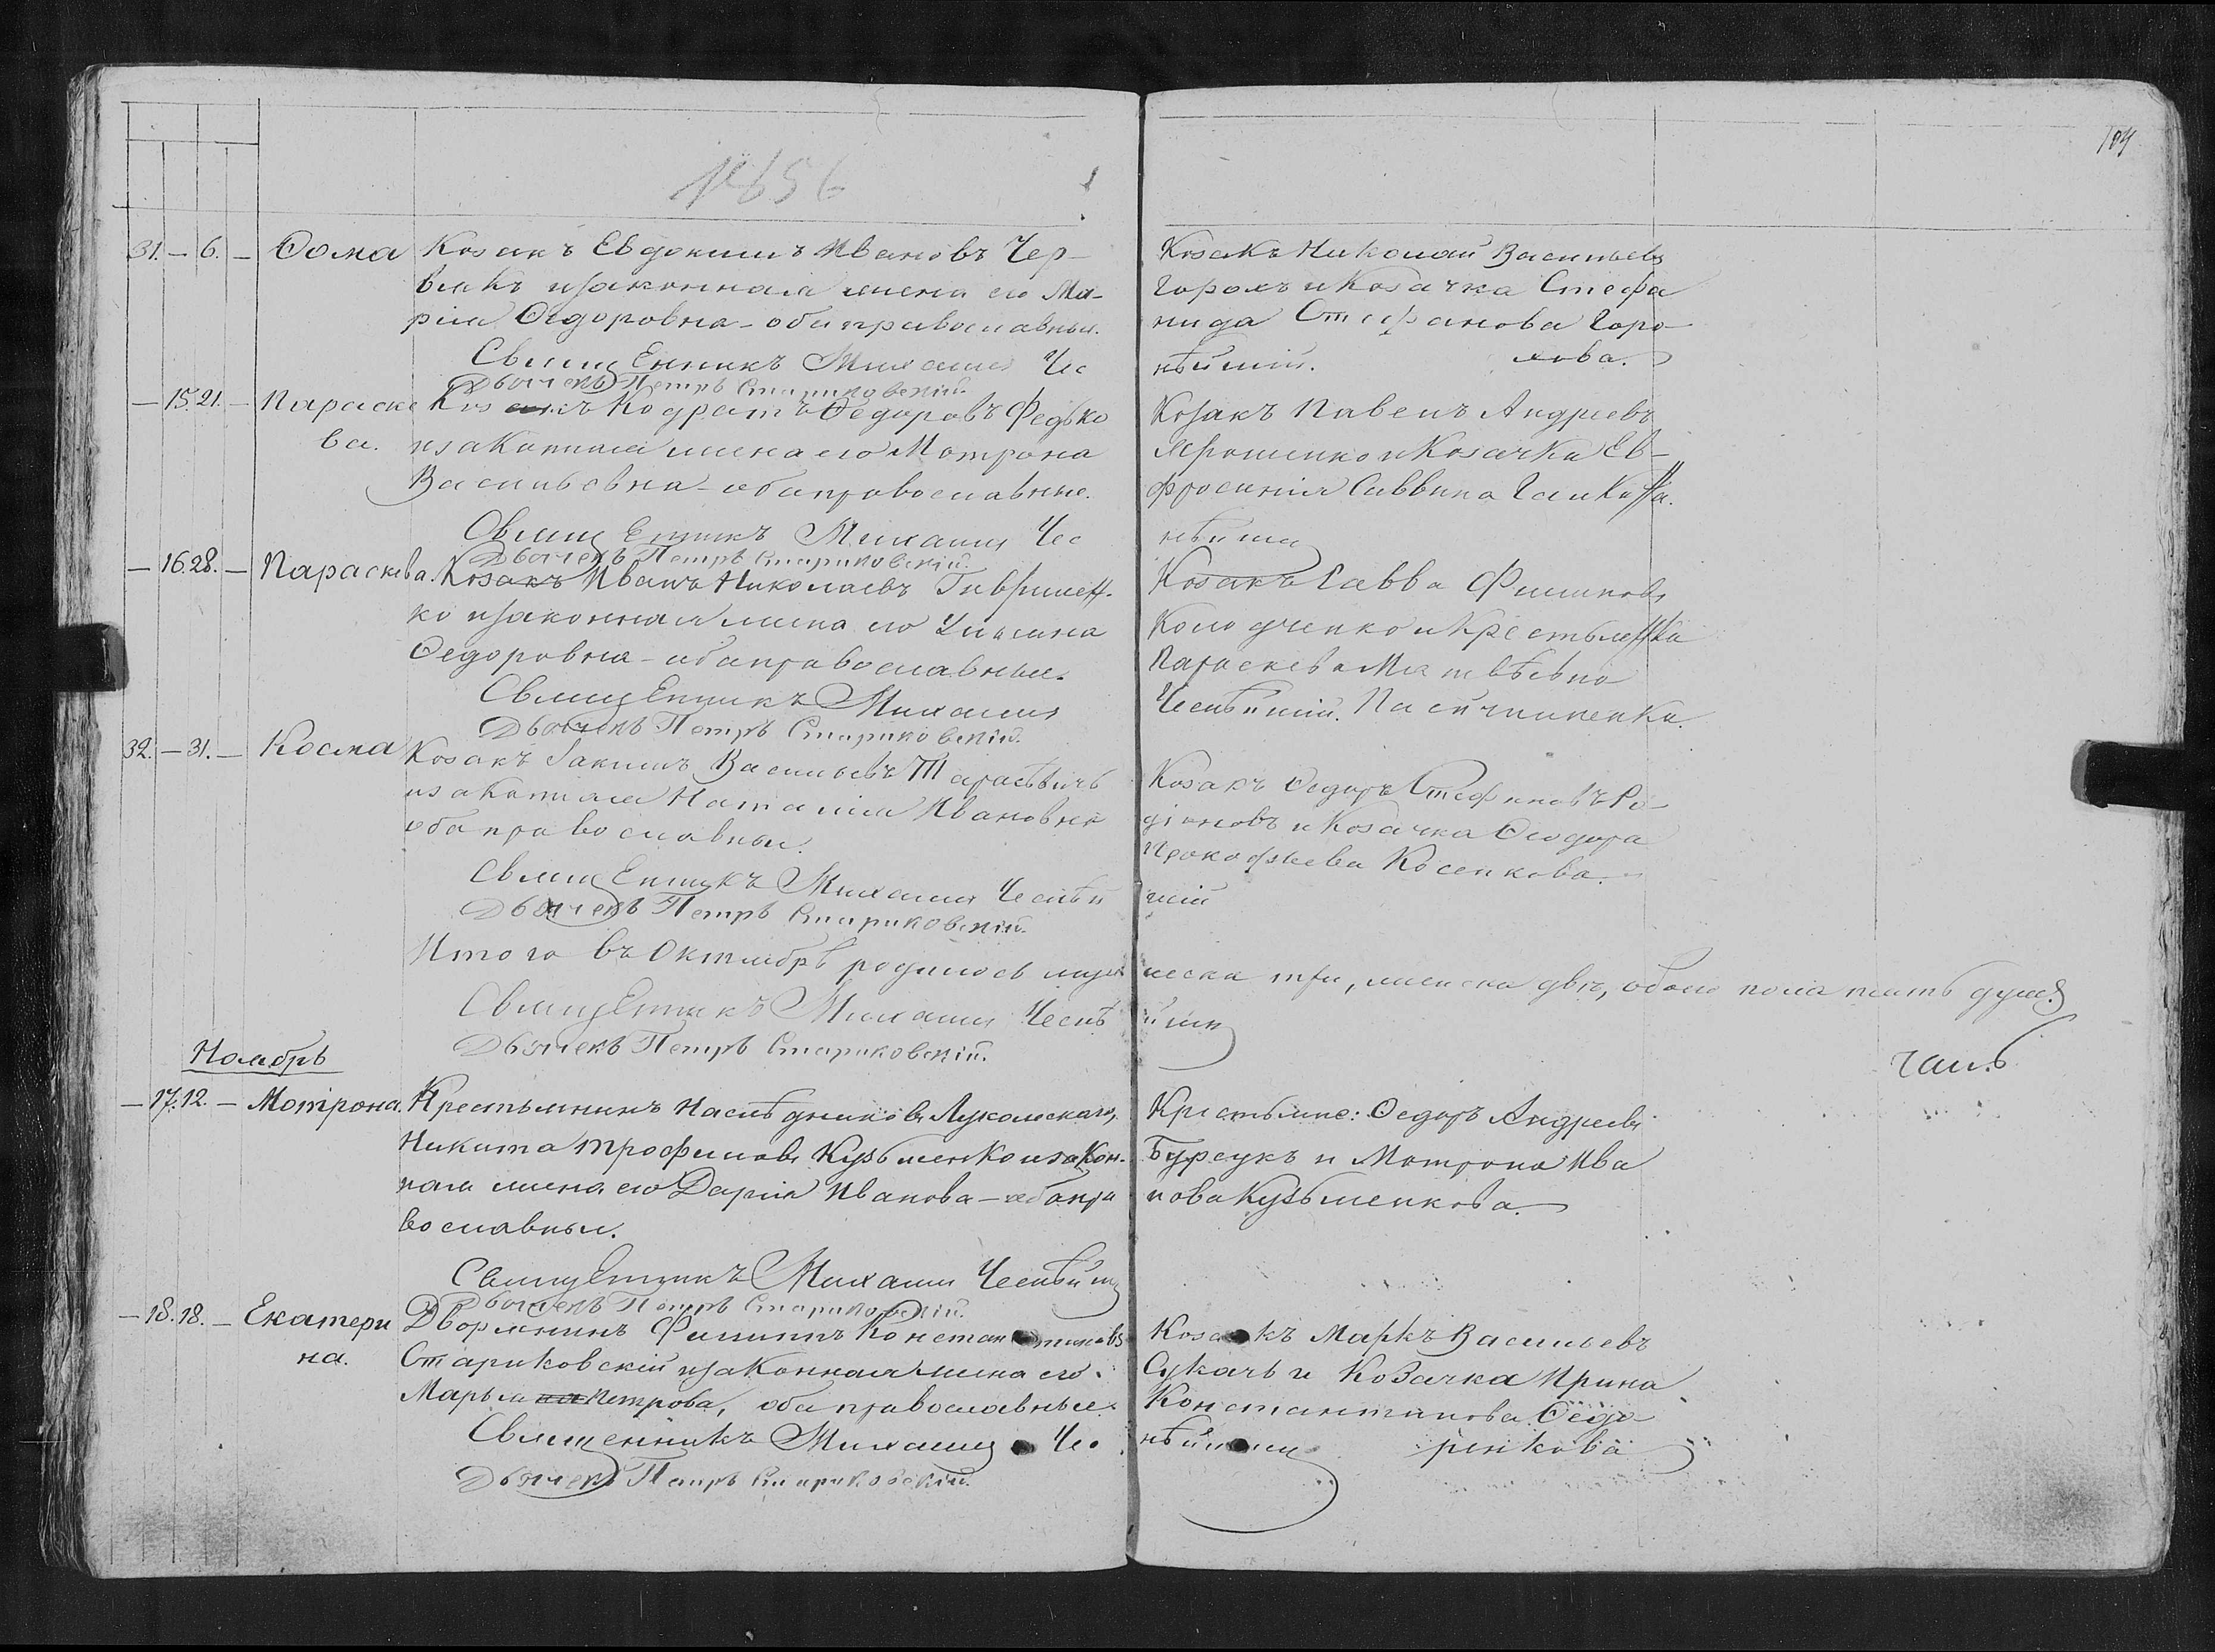 1856
104
31. — 6. — Ѳома Козакъ Евдокимъ Ивановъ Чер-
вякъ и законная жена его Ма-
рія Ѳедоровна - оба православные.
Священникъ Михаилъ Чес
Дьячекъ Петръ Стариковскій.
Козакъ Николай Васильевъ
Горохъ и Козачка Стефа
нида Стефанова Горо-
хова.
нѣйшій.
— 15. 21. — Параске Козакъ Кодратъ Ѳедоровъ Федько
ва. и законная жена его Мотрона
Васильевна - оба православные.
Священникъ Михаилъ Чес
Дьячекъ Петръ Стариковскій.
Козакъ Павелъ Андреевъ
Ярошенко и Козачка Ев-
фросинія Саввина
нѣйшій
— 16. 28. — Параскева. Козакъ Иванъ Николаевъ Гаврилен-
ко и законная жена его Ульяна
Ѳедоровна - оба православные.
Священникъ Михаилъ
Дьячекъ Петръ Стариковскій.
Козакъ Савва Филиповъ
Колодченко и Крестьянка
Параскева Матвѣевна
Чеснѣйшій.
32. — 31. — Косма Козакъ Іакимъ Васильевъ
и законная Наталія Ивановна
оба православные.
Священникъ Михаилъ Чеснѣй
Дьячекъ Петръ Стариковскій.
Козакъ Ѳедоръ Стефановъ Ро-
діоновъ и Козачка Ѳеодора
Прокофьева Косенкова.
шій
Итого въ Октябрѣ родилось мужеска три, женска двѣ, обоего пола пять душъ.
Священникъ Михаилъ Чеснѣйшій
Дьячекъ Петръ Стариковскій.
Ноябрь
— 17. 12. — Мотрона. Крестьянинъ Наслѣдниковъ Лукомскаго,
Никита Трофимовъ Кузьменко и закон-
ная жена его Дарія Иванова - оба пра
вославные.
Священникъ Михаилъ Чеснѣйшій
Дьячекъ Петръ Стариковскій.
Крестьяне: Ѳедоръ Андреевъ
и Мотрона Ива
нова Кузьменкова.
— 18. 18. — Екатери Дворянинъ Филиппъ Константиновъ
на. Стариковскій и законная жена его
Марья Петрова, оба православные.
Священникъ Михаилъ Чес
Дьячекъ Петръ Стариковскій.
Козакъ Маркъ Васильевъ
Сукачь и Козачка Ирина
Константинова Ѳедо
ренкова
нѣйшій